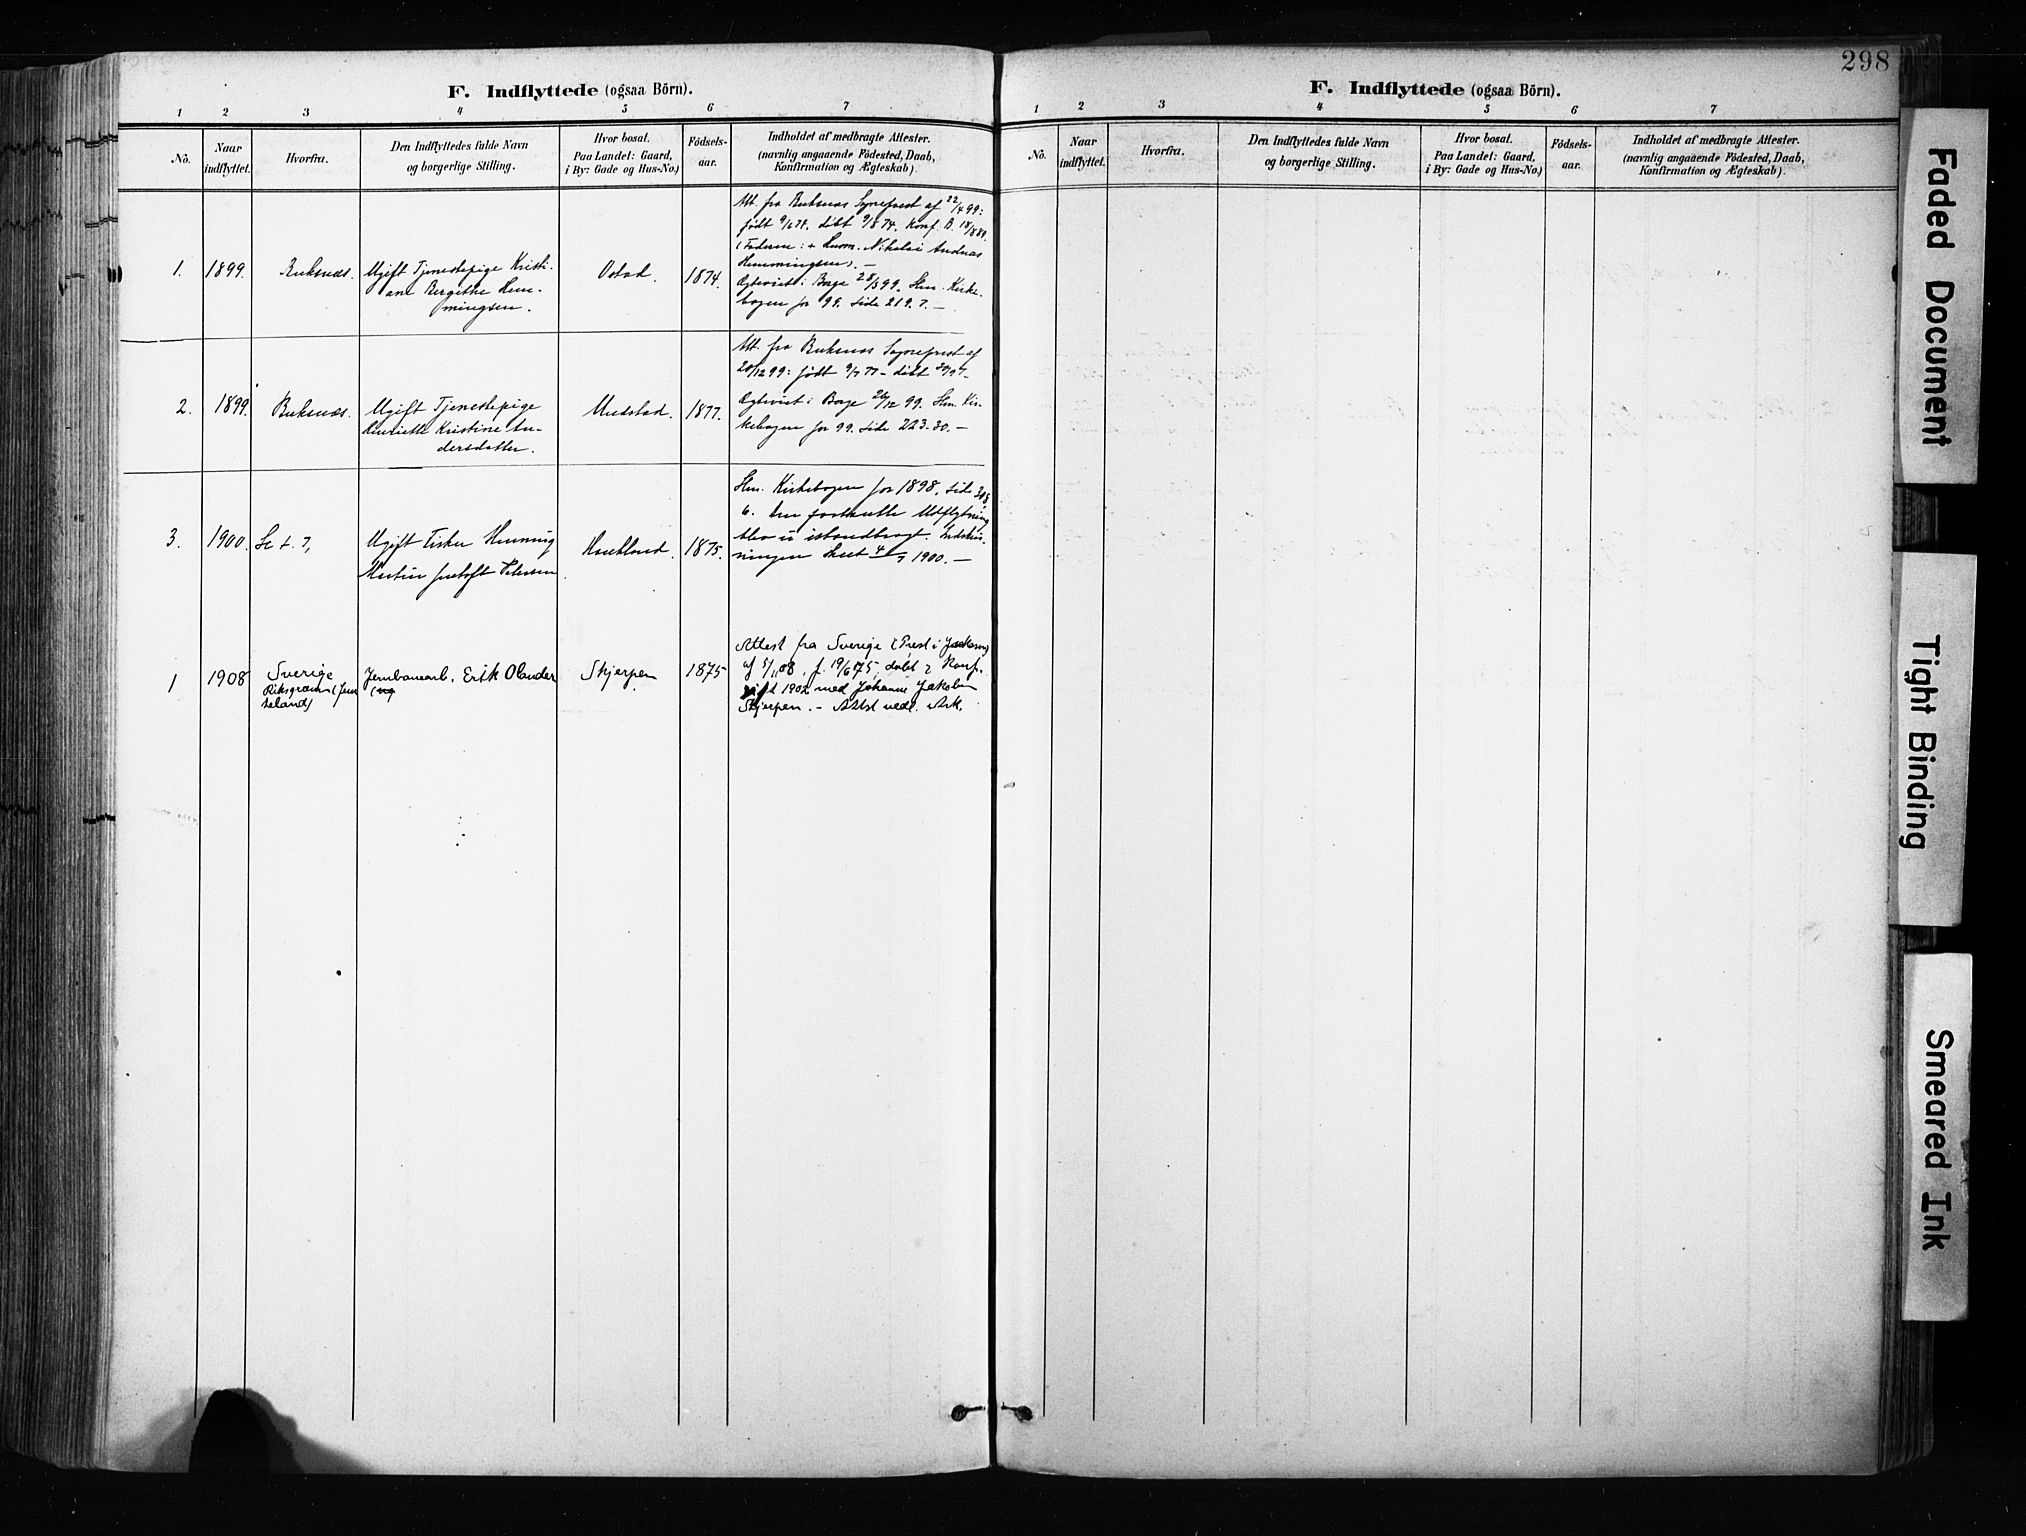 298
F. Indflyttede (ogsaa Börn).
1 2 3 4 5 6 7
No.
Naar indflyttet.
Hvorfra.
Den Indflyttedes fulde Navn
og borgerlige Stilling.
Hvor bosat.
Paa Landet: Gaard,
i By: Gade og Hus-No.)
Födsels-
aar.
Indholdet af medbragte Attester.
(navnlig angaaende Födested, Daab,
Konfirmation og Ægteskab).
1. 1899. Buksnæs.
Ugift Tjenestepige Kristi-
ane Bergithe Hem-
mingsen.
1874.
Att. fra Buksnæs Sogneprest af 22/4 99:
født
døbt
Konf.
(Faderen: + Husm. Nikolai Andreas
Hemmingsen). —
Ægteviet i Borge 28/5 99. Hen. Kirke-
bogen for 99. Side 219. 7. —
2. 1899. Buksnæs.
Ugift Tjenestepige
Henriette Kristine An-
dersdatter.
1877.
Att. fra Buksnæs Sogneprest af
20/12 99: født
døbt
Ægteviet i Borge 26/12 99. Hen. Kir-
kebogen for 99. Side 223. 30. —
3. 1900.
Ugift Fisker Henning
Martin
Petersen
1875.
Hen. Kirkebogen for 1898. Side
6. Den
Udflytning
blev ei istandbragt.
ningen skeet
1900. —
1 1908 Sverige
Jernbanearb. Erik Olander
Skjerpen 1875
Attest fra Sverige (Prest i
af 5/11 08, f. 19/6 75, døbt & Konf.
gift 1902 med Johanne Jakoba
Skjerpen. - Attst vedl. Ark.
F. Indflyttede (ogsaa Börn).
1 2 3 4 5 6 7
No.
Naar indflyttet.
Hvorfra.
Den Indflyttedes fulde Navn
og borgerlige Stilling.
Hvor bosat.
Paa Landet: Gaard,
i By: Gade og Hus-No.)
Födsels-
aar.
Indholdet af medbragte Attester.
(navnlig angaaende Födested, Daab,
Konfirmation og Ægteskab).
Faded Document
Tight Binding
Smeared Ink